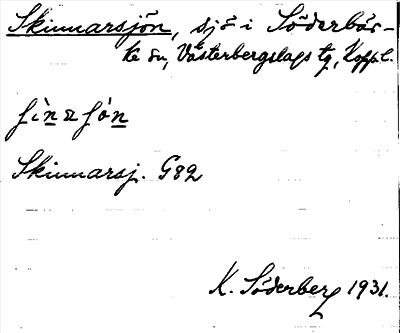 Skinnarsjön, sjö i Söderbär-
ke sn, Västerbergslags tg, Koppl.
Skinnarsj. G82
K. Söderberg 1931.